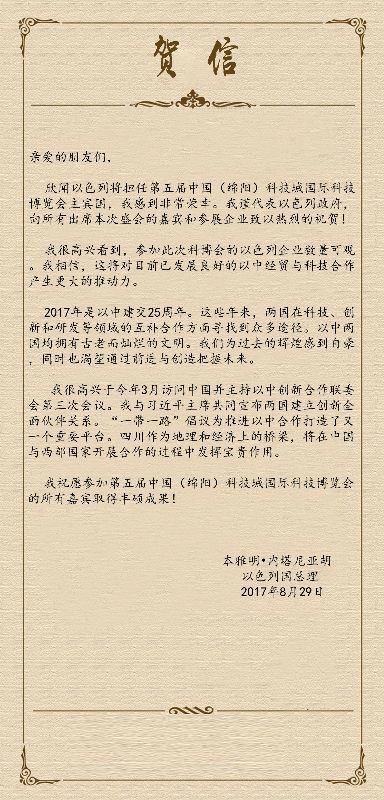 贺信
亲爱的朋友们，
欣闻以色列将担任第五届中国（绵阳）科技城国际科技
博览会主宾国，我感到非常荣幸。我谨代表以色列政府，
向所有出席本次盛会的嘉宾和参展企业致以热烈的祝贺！
我很高兴看到，参加此次科博会的以色列企业数量可观
。我相信，这将对目前已发展良好的以中经贸与科技合作
产生更大的推动力。
2017年是以中建交25周年。这些年来，两国在科技、创
新和研发等领域的互补合作方面寻找到众多途径。以中两
国均拥有古老而灿烂的文明。我们为过去的辉煌感到自豪
，同时也渴望通过前进与创造把握未来。
我很高兴于今年3月访问中国并主持以中创新合作联委
会第三次会议。我与习近平主席共同宣布两国建立创新全
面伙伴关系。“一带一路”倡议为推进以中合作打造了又
一个重要平台。四川作为地理和经济上的桥梁，将在中国
与西部国家开展合作的过程中发挥宝贵作用。
我祝愿参加第五届中国（绵阳）科技城国际科技博览会
的所有嘉宾取得丰硕成果！
本雅明•内塔尼亚胡
以色列国总理
2017年8月29日